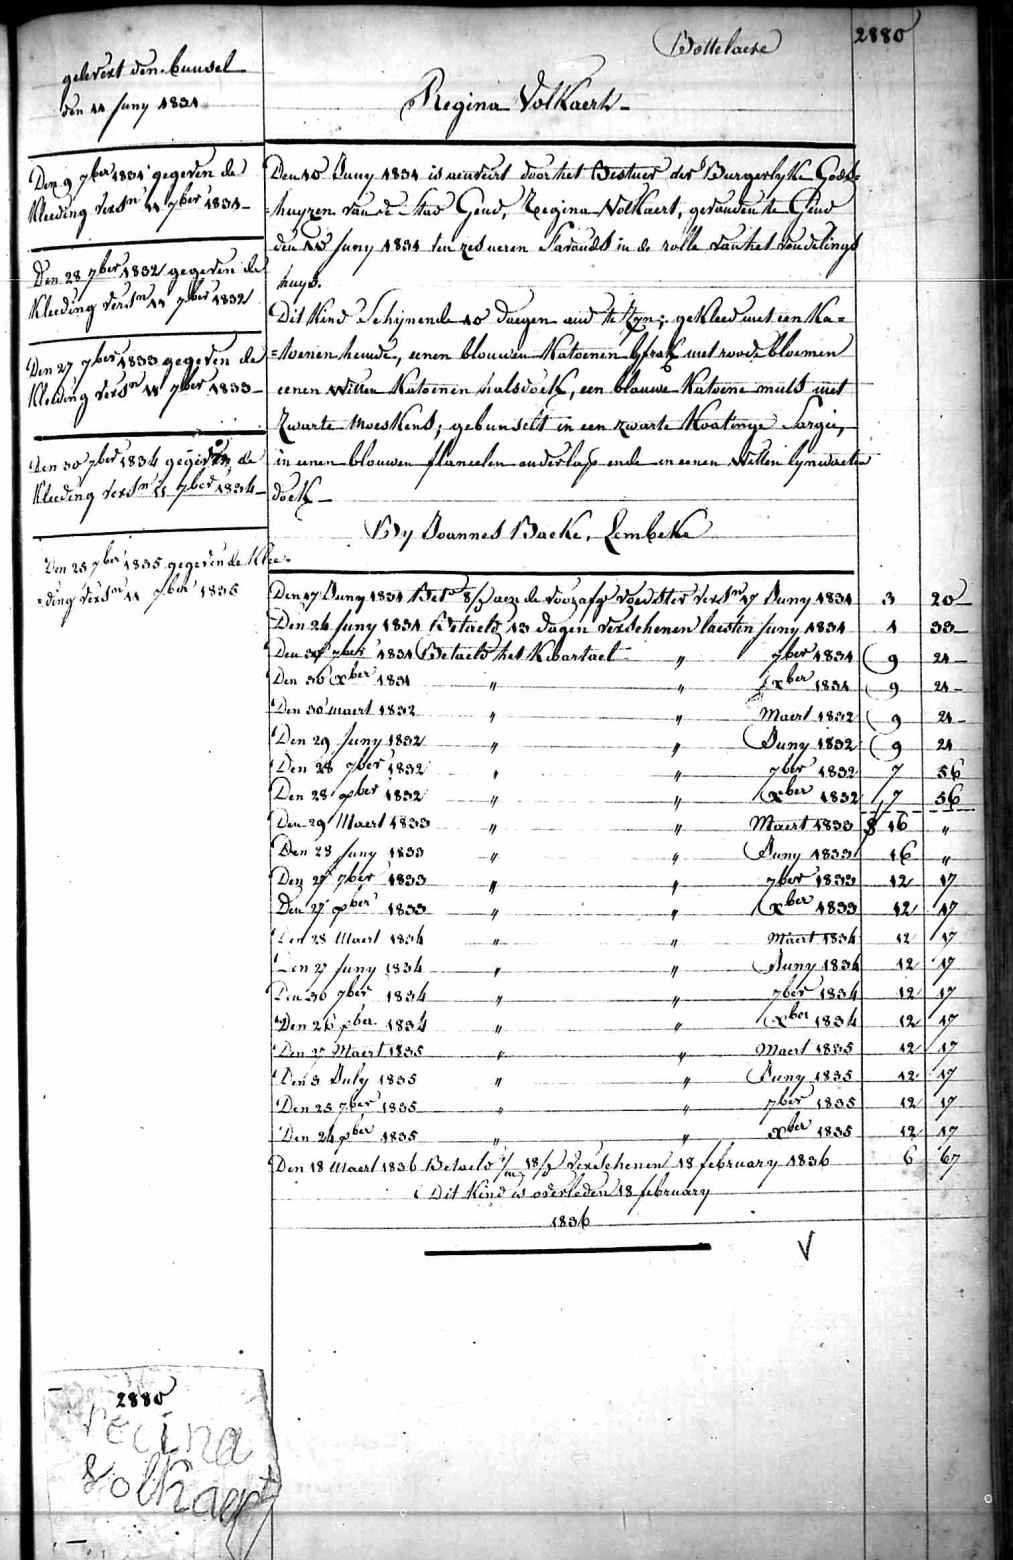 Bottelaere
2880
Regina Volkaert
gelevert den bunsel
den 11 Juny 1831
Den 9 7ber 1831 gegeven de
Kleeding versn 11 7ber 1831
Den 28 7ber 1832 gegeven de
Kleeding versn 11 7ber 1832
Den 27 7ber 1833 gegeven de
Kleeding versn 11 7ber 1833
Den 30 7ber 1834 gegeven de
Kleeding versn 11 7ber 1834
Den 25 7ber 1835 gegeven de Klee=
=ding versn 11 7ber 1835
Den 10 Juny 1831 is door het Bestuer der Burgerlyke Gods=
=huyzen van de Stad Gend, Regina Volkaert, gevonden te Gend
den Juny 1831 ten zes ueren Savonds in de rolle van het vondelings
huys.
Dit Kind Schynende 10 daegen oud te Zyn; gekleed met een Ka=
=toenen hemde, eenen blouwen Katoenen met roode bloemen
eenen witten Katoenen halsdoek, een blauwe Katoene muts met
Zwarte moeskens; gebunselt in een zwarte Koatinge Sargie,
in eenen blouwen flaneelen onderlap ende in eenen Witten lynwaeten
doek
By Joannes Baeke, Lembeke
Den 17 Juny 1831 Bet 8/ aen de voedster versn 17 Juny 1831 3 20
Den 24 Juny 1831 Betaeld 13 dagen verschenen laesten Juny 1831 1 33
Den 30 7ber 1831 Betaeld het Kwartael " 7ber 1831 9 21
Den 30 xber 1831 " " xber 1831 9 21
Den 30 maert 1832 " " Maert 1832 9 21
Den 29 Juny 1832 " " Juny 1832 9 21
Den 28 7ber 1832 " " 7ber 1832 7 56
Den 28 xber 1832 " " xber 1832 7 56
Den 29 Maert 1833 " " Maert 1833 16 "
Den 28 Juny 1833 " " Juny 1833 16 "
Den 27 7ber 1833 " " 7ber 1833 12 17
Den 27 xber 1833 " " xber 1833 12 17
Den 28 Maert 1834 " " Maert 1834 12 17
Den 27 Juny 1834 " " Juny 1834 12 17
Den 30 7ber 1834 " " 7ber 1834 12 17
Den 26 xber 1834 " " xber 1834 12 17
Den 27 Maert 1835 " " Maert 1835 12 17
Den 3 July 1835 " " Juny 1835 12 17
Den 25 7ber 1835 " " 7ber 1835 12 17
Den 24 xber 1835 " " xber 1835 12 17
Den 18 Maert 1836 Betaeld 18/ Verschenen 18 february 1836 6 67
Dit Kind is overleden 18 february
1836
V
2880
recina
volkaert